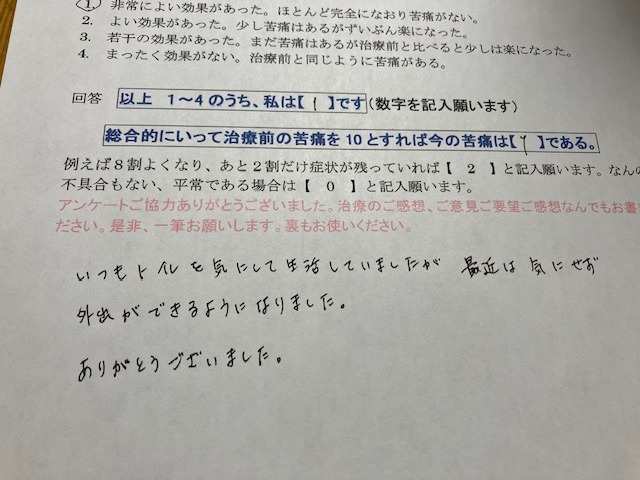 1. 非常によい効果があった。ほとんど完全になおり苦痛がない。
2. よい効果があった。少し苦痛はあるがずいぶん楽になった。
3. 若干の効果があった。まだ苦痛はあるが治療前と比べると少しは楽になった。
4. まったく効果がない。治療前と同じように苦痛がある。
回答 以上 1～4のうち、私は【 1 】です(数字を記入願います)
総合的にいって治療前の苦痛を10とすれば今の苦痛は【 1 】である。
例えば8割よくなり、あと2割だけ症状が残っていれば【 2 】と記入願います。なんの
不具合もない、平常である場合は【 0 】と記入願います。
アンケートご協力ありがとうございました。治療のご感想、ご意見ご要望ご感想なんでもお書き
ださい。是非、一筆お願いします。裏もお使いください。
いつもトイレを気にして生活していましたが 最近は気にせず
外出ができるようになりました。
ありがとうございました。